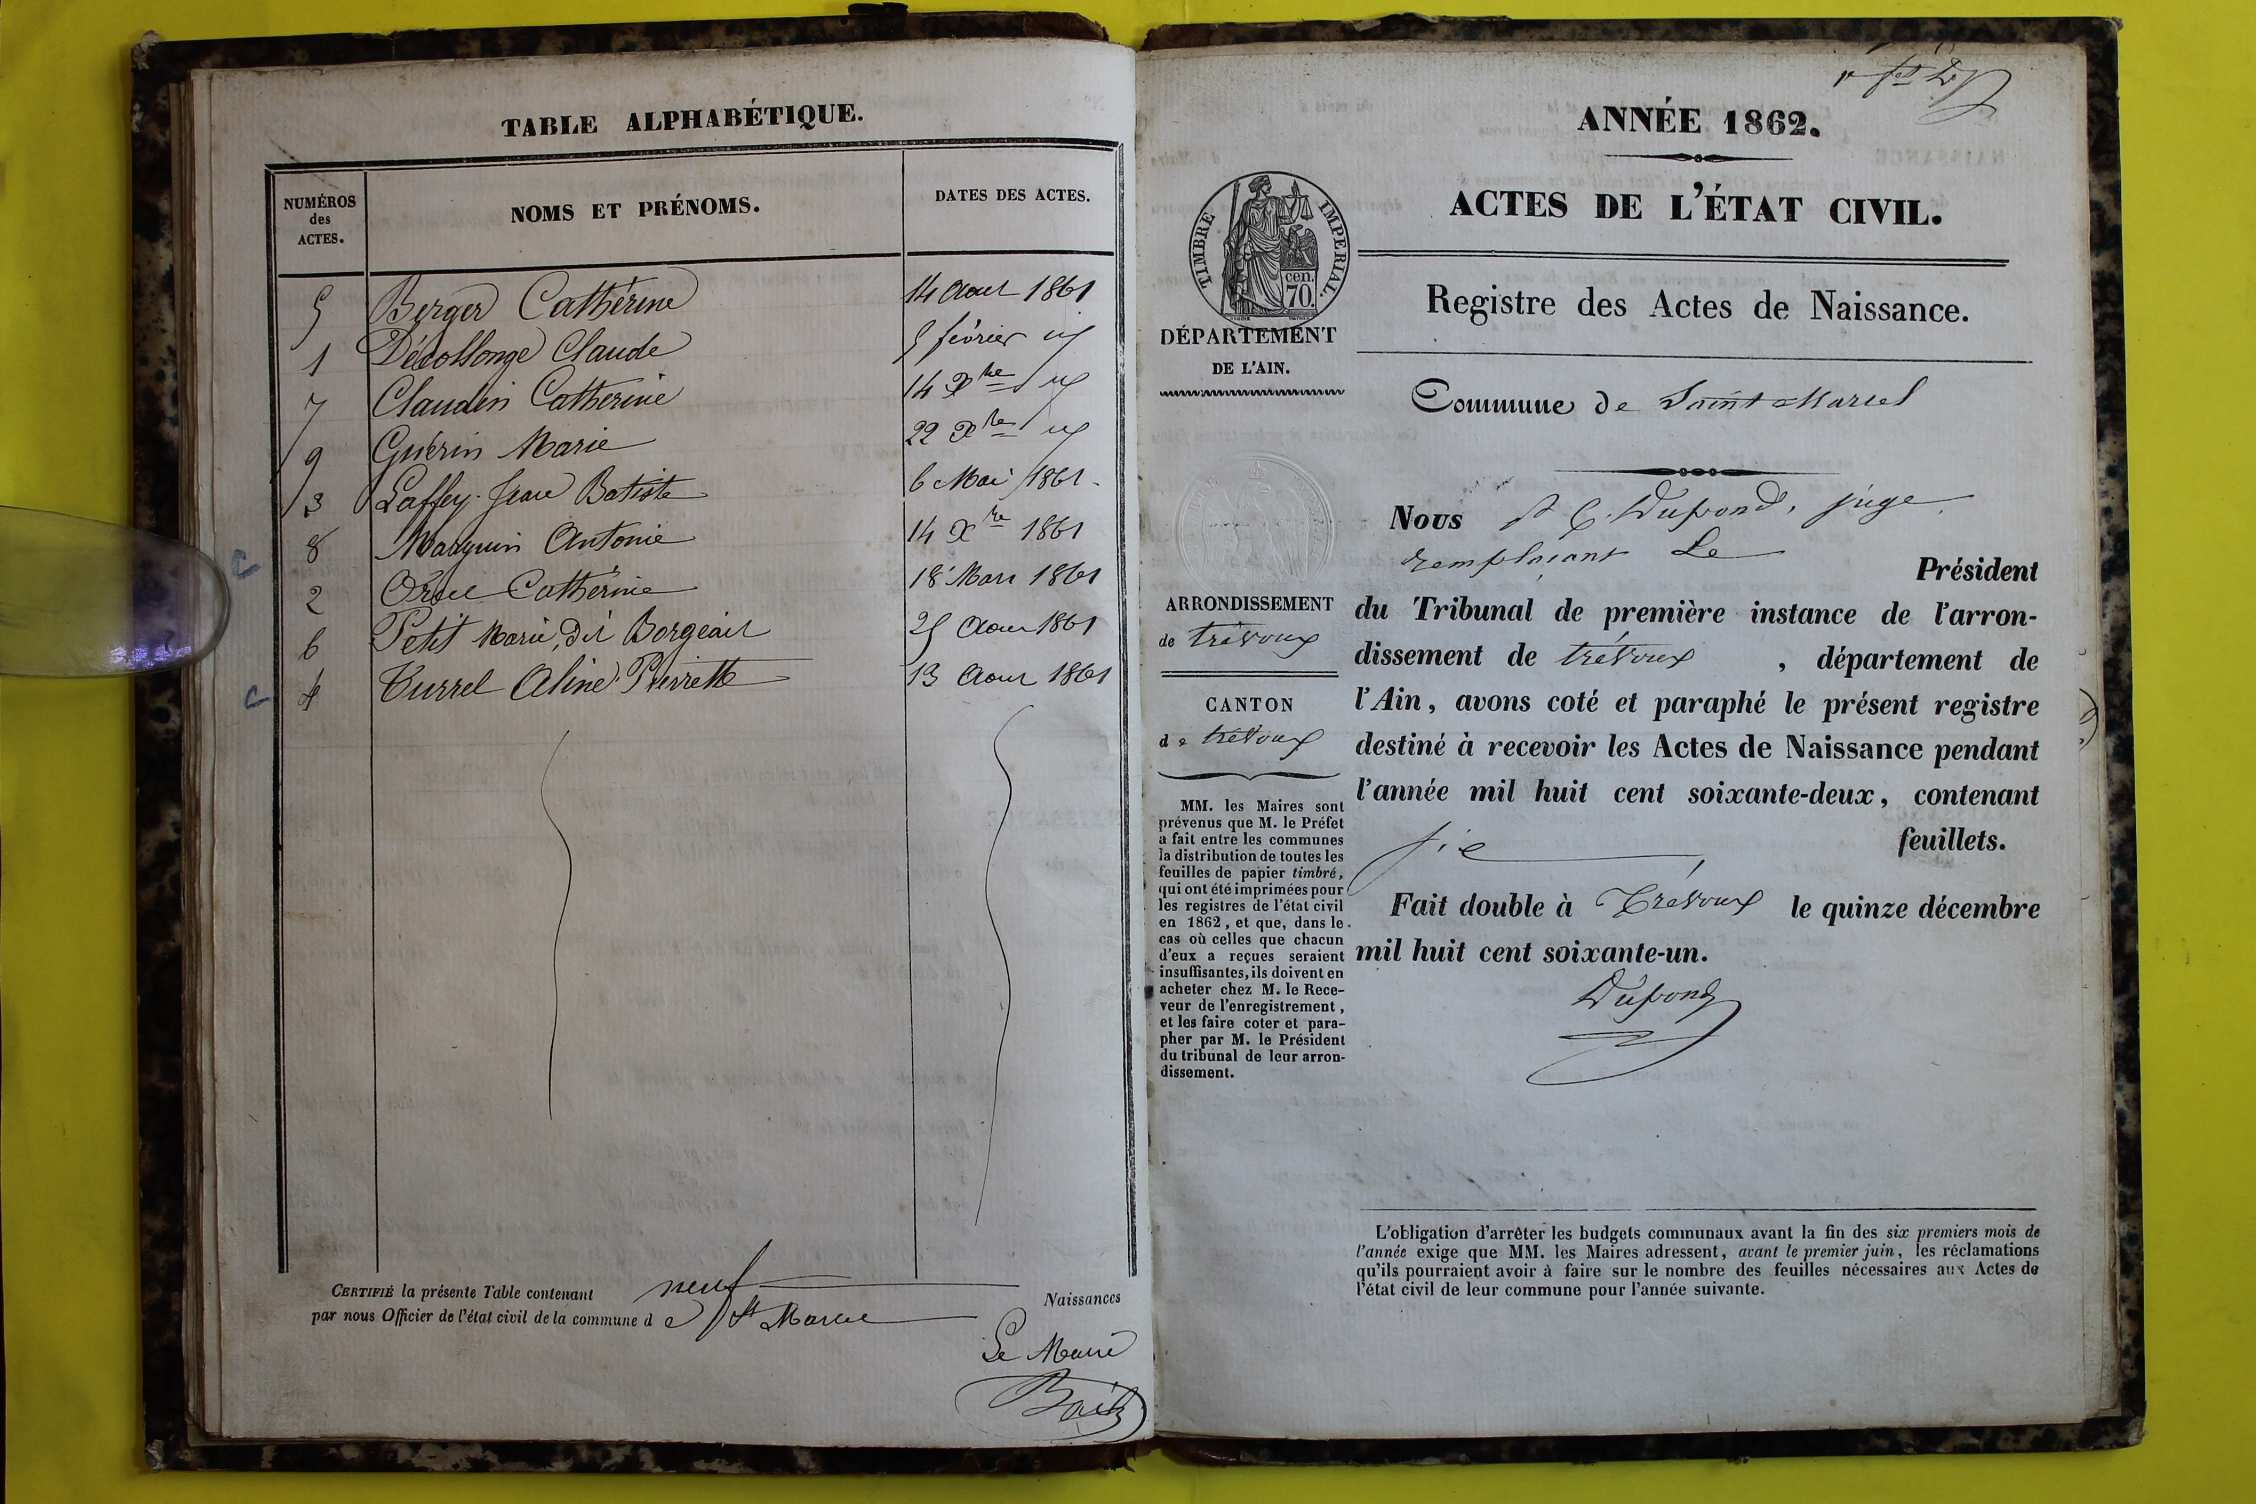 TABLE ALPHABÉTIQUE.
NUMÉROS
des
ACTES.
NOMS ET PRÉNOMS.
DATES DES ACTES.
5 Berger Cathérine 14 Aout 1861
1 Décollonge Claude 5 février id
7 Claudin Catherine 14 Xbre id
9 Guérin Marie 22 Xbre id
3 Laffay Jean Batiste 6 Mai 1861
8 Manguin Antonie 14 Xre 1861
2 Catherine 18 Mars 1861
6 Petit Marie, dit Borgeait 25 Aout 1861
4 Turrel Aline Pierrette 13 Aout 1861
CERTIFIÉ la présente Table contenant neuf Naissances
par nous Officier de l'état civil de la commune d e St Marcel
Le Maire
ANNÉE 1862.
ACTES DE L'ÉTAT CIVIL.
TIMBRE IMPERIAL.
70.
cen.
DÉPARTEMENT
DE L'AIN.
Registre des Actes de Naissance.
Commune de Saint Marcel
ARRONDISSEMENT
de trévoux
CANTON
de trévoux
MM. les Maires sont
prévenus que M. le Préfet
a fait entre les communes
la distribution de toutes les
feuilles de papier timbré,
qui ont été imprimées pour
les registres de l'état civil
en 1862, et que, dans le
cas où celles que chacun
d'eux a reçues seraient
insuffisantes, ils doivent en
acheter chez M. le Rece-
veur de l'enregistrement,
et les faire coter et para-
pher par M. le Président
du tribunal de leur arron-
dissement.
Nous Dupond, juge
remplaçant Le
Président
du Tribunal de première instance de l'arron-
dissement de trévoux , département de
l'Ain, avons coté et paraphé le présent registre
destiné à recevoir les Actes de Naissance pendant
l'année mil huit cent soixante-deux, contenant
six feuillets.
Fait double à Trévoux le quinze décembre
mil huit cent soixante-un.
Dupond
L'obligation d'arrêter les budgets communaux avant la fin des six premiers mois de
l'année exige que MM. les Maires adressent, avant le premier juin, les réclamations
qu'ils pourraient avoir à faire sur le nombre des feuilles nécessaires aux Actes de
l'état civil de leur commune pour l'année suivante.